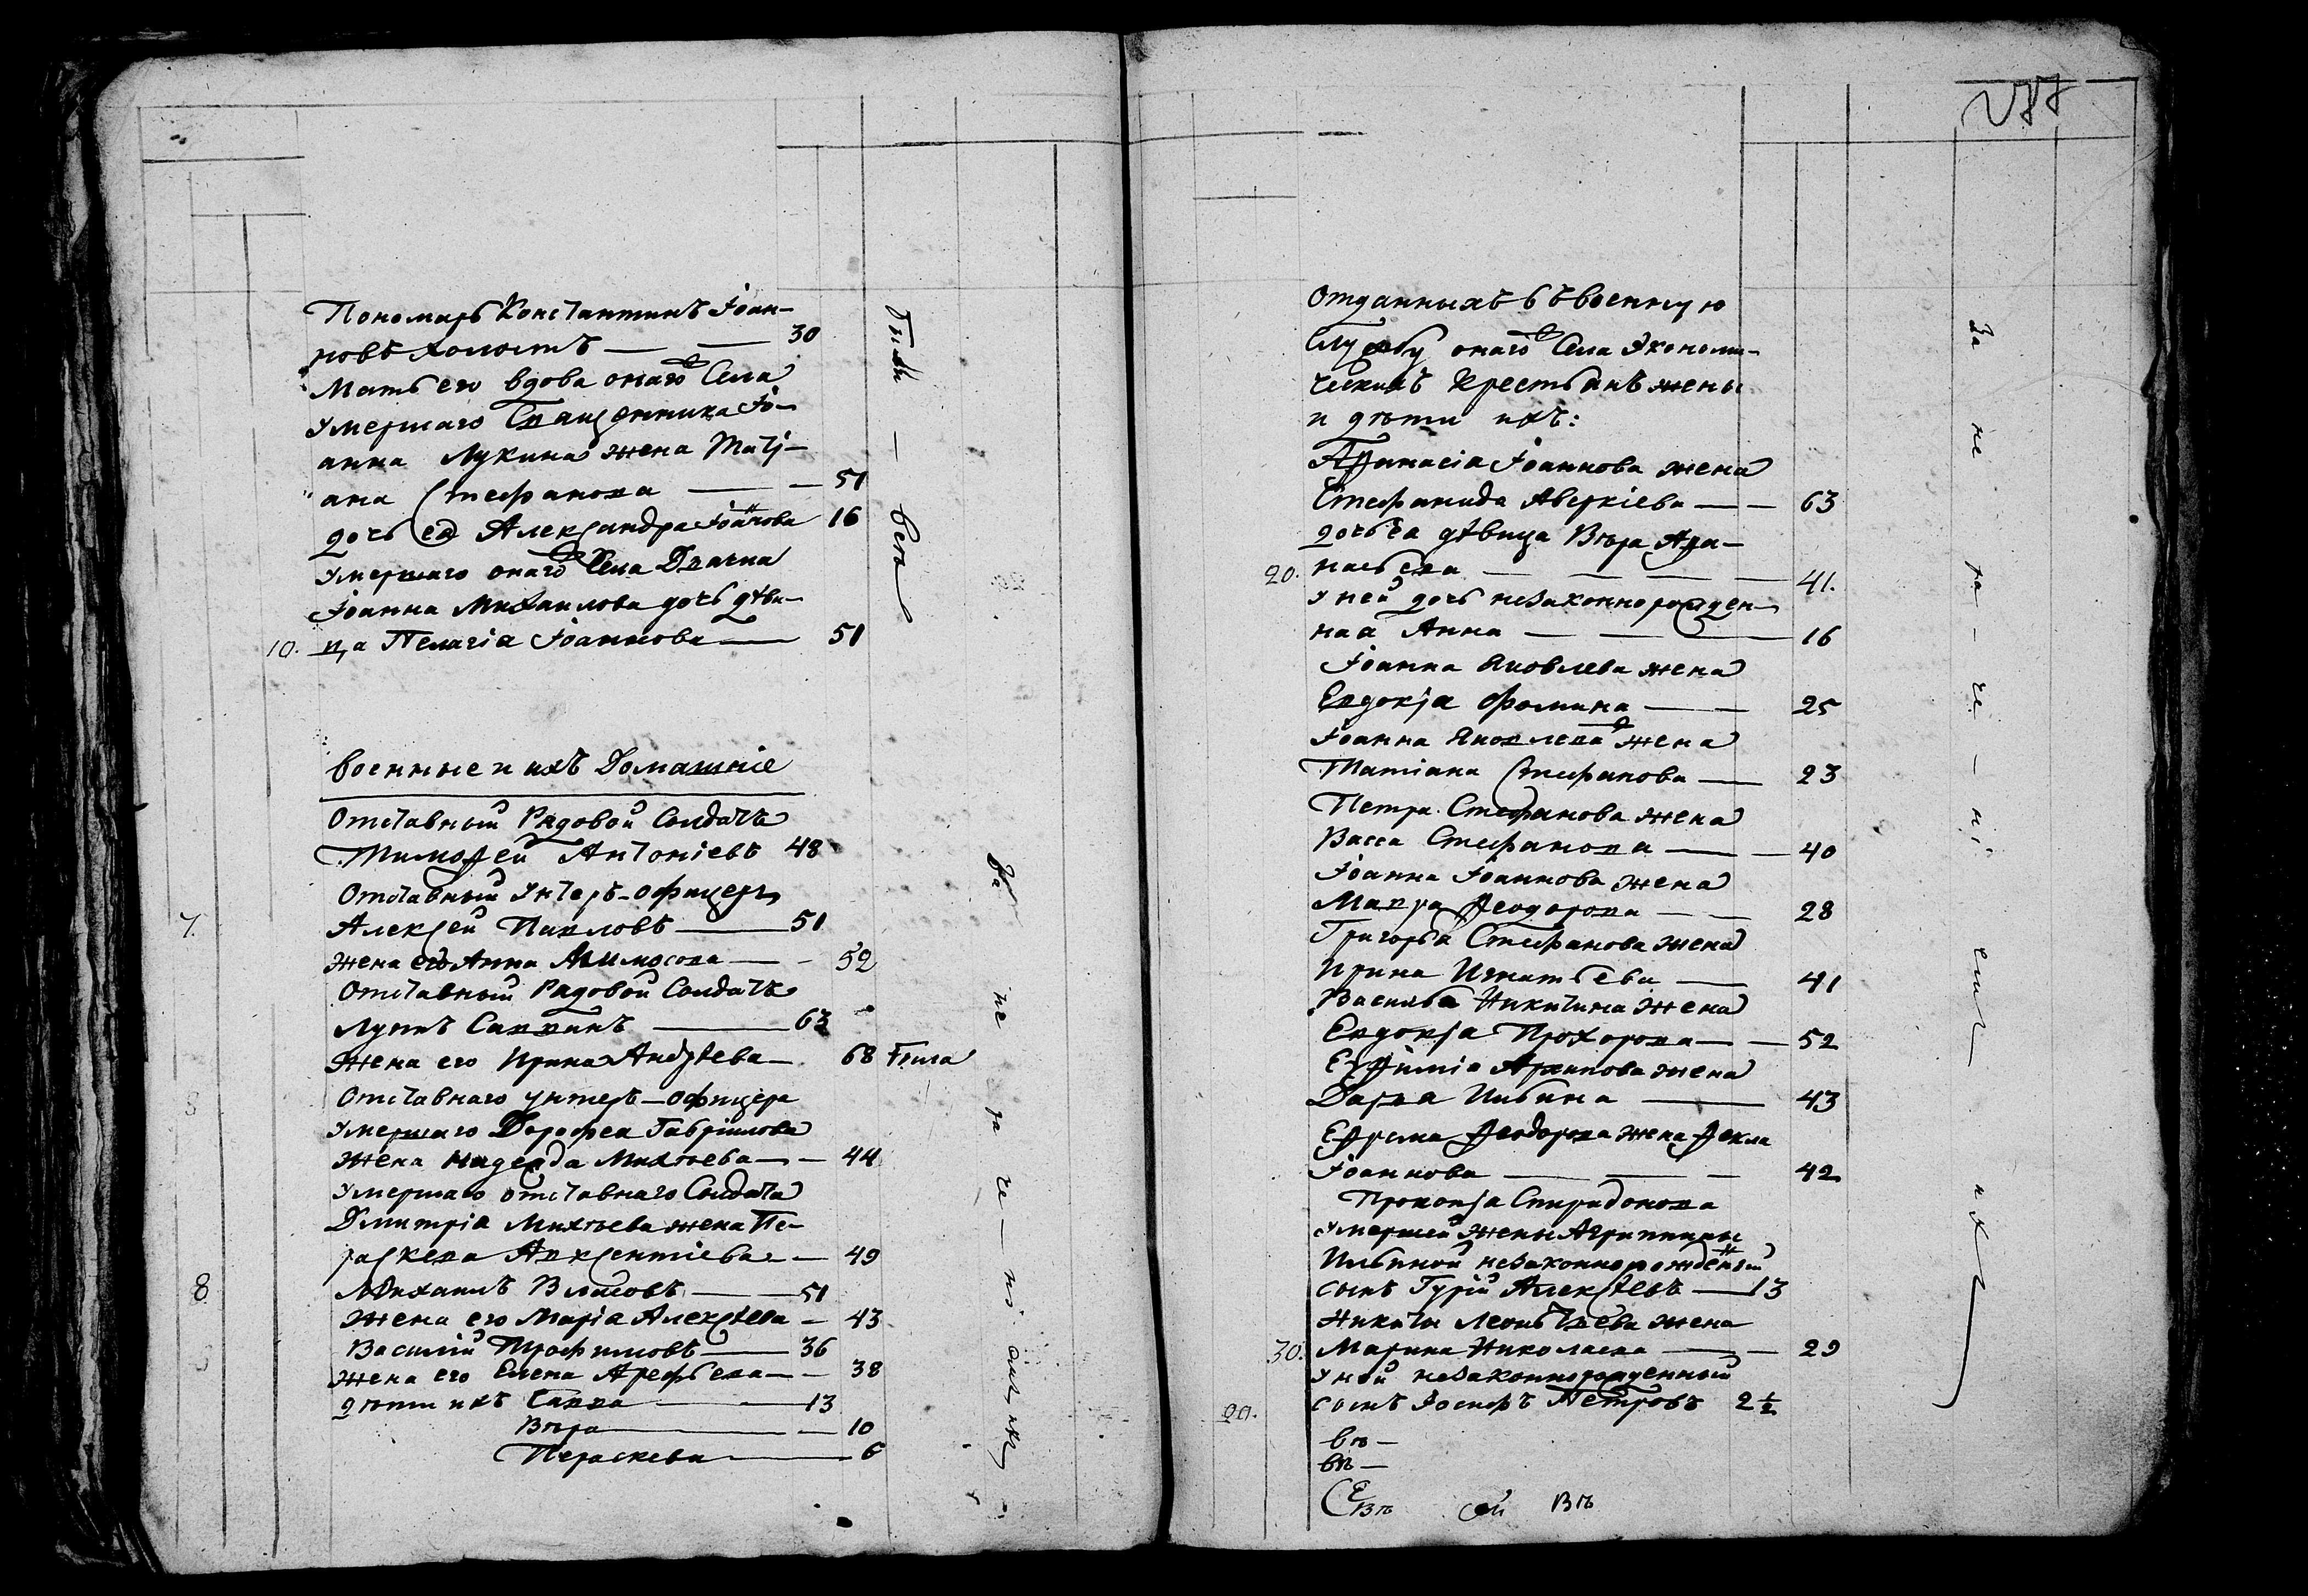 Пономарь Константинъ Іоан-
новъ холостъ — — 30
Мать его вдова онаго Села
умершаго Священника Іо-
анна Лукина жена Татj-
ана Стефанова — — 51
дочь ея Александра Іоаннова 16
умершаго онаго Села Діачка
Іоанна Михаилова дочь дѣви-
10. ца Пелагіа Іоаннова — 51
были — всѣ
военные и ихъ Домашніе
Отставный Рядовой Солдатъ
Тимоѳей Антоніевъ 48
Отставный Унтеръ-офицеръ
7. Алексей Павловъ — 51
жена его Анна — 52
Отставный Рядовой Солдатъ
Лупъ Саввинъ — 63
жена его Ирина Андрѣева — 68 была
Отставнаго унтеръ-офицера
умершаго Дорофеа Гавріилова
жена Надежда Михѣева — — 44
умершаго отставнаго Солдата
Дмитріа Михѣева жена Па-
раскева Авксентіева — — 49
8. Михаилъ Власовъ — 51
жена его Маріа Алексѣева — 43
Василій Трофимовъ — 36
жена его Елена Арефьева — — 38
дѣти ихъ Савва — 13
Вѣра — — 10
Параскева — 6
За не ра че — ні емъ ихъ
288
Отданныхъ въ военную
Службу онаго Села Экономи-
ческихъ Крестьянъ жены
и дѣти ихъ:
Аѳанасіа Іоаннова жена
Стефанида Аверкіева — — 63
дочь еа дѣвица Вѣра Аѳа-
20. насьева — — — — 41.
у ней дочь незаконнорожден-
наа Анна — — — 16
Іоанна Яковлева жена
Евдокjа Фомина — — 25
Іоанна Яковлева жена
Татіана Стефанова — 23
Петра Стефанова жена
Васса Стефанова — — 40
Іоанна Іоаннова жена
Мавра Ѳеодорова — — 28
Григорьа Стефанова жена
Ирина Игнатьева — 41
Васильа Никитина жена
Евдокjа Прохорова — — 52
Евѳиміа Архипова жена
Дарьа Ильина — 43
Ефрема Ѳеодорова жена Ѳекла
Іоаннова — — — 42
Прокопjа Спиридонова
умершей жены Агрипины
Ильиной незаконнорожденный
сынъ Гурій Алексѣевъ — 13
Никиты Леонтьева жена
30. Марина Николаева — — 29
у ней незаконнорожденный
20. сынъ Іосифъ Петровъ 2½
вѣ —
вѣ —
Вѣ ой Вѣ
За не ра — че — ні емъ ихъ